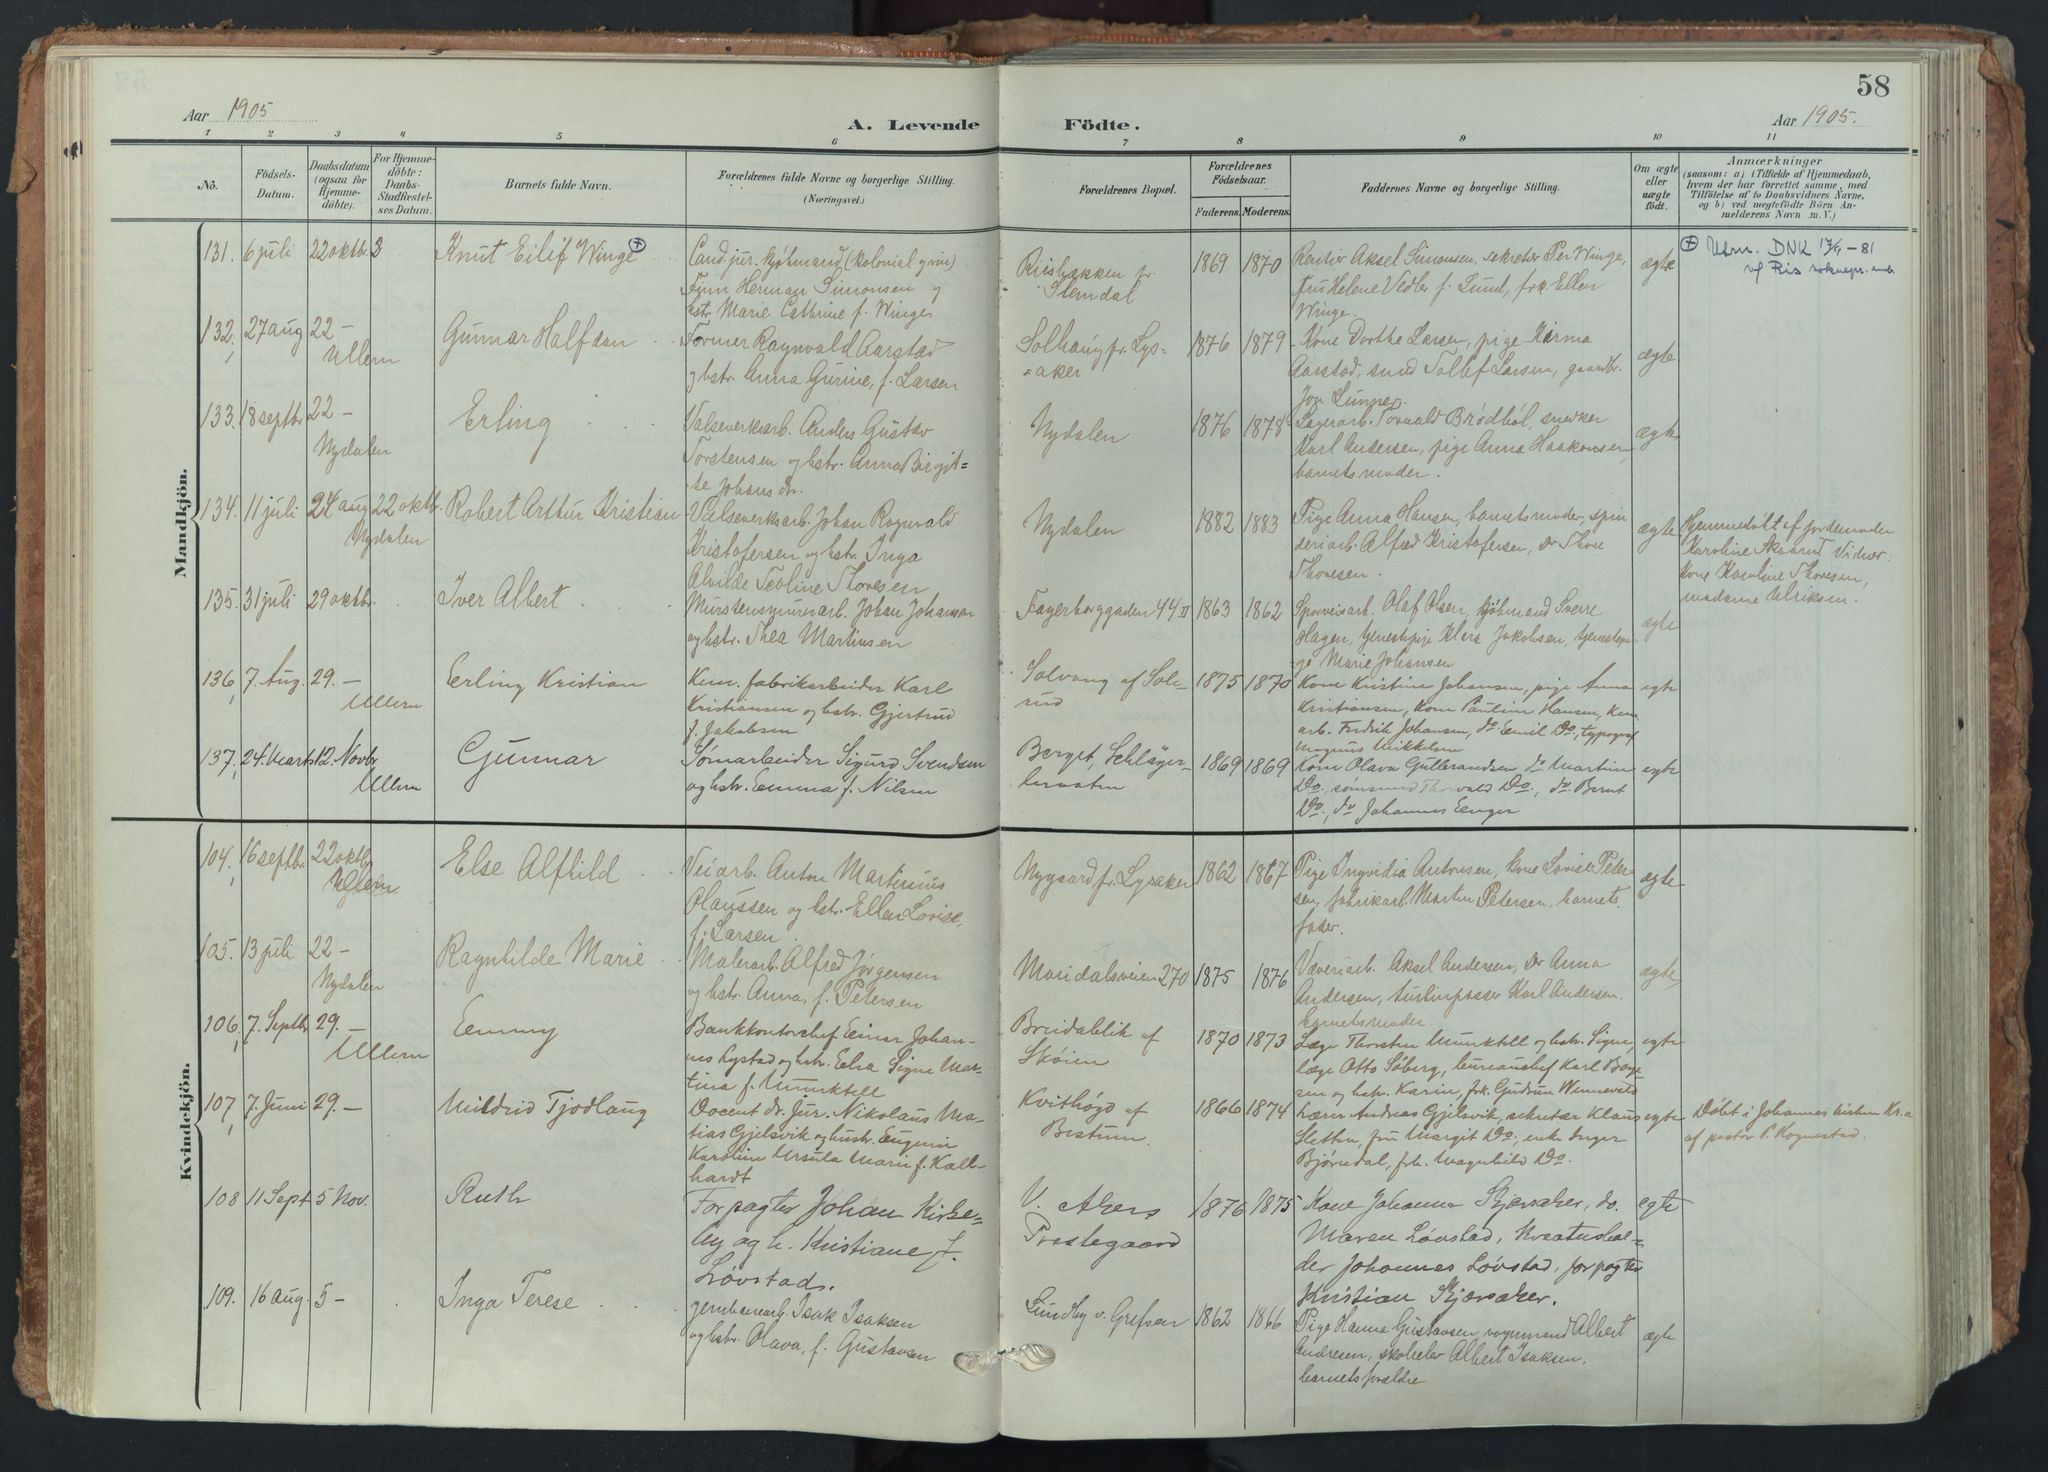 58
Aar 1905
A. Levende Födte.
Aar 1905.
1 2 3 4 5 6 7 8 9 10 11
No.
Födsels-
Datum.
Daabsdatum
(ogsaa for
Hjemme-
döbte).
For Hjemme-
döbte:
Daabs-
Stadfæstel-
ses Datum.
Barnets fulde Navn.
Forældrenes fulde Navne og borgerlige Stilling.
(Næringsvei.)
Forældrenes Bopæl.
Forældrenes
Födselsaar.
Faderens. Moderens.
Faddernes Navne og borgerlige Stilling.
Om ægte
eller
uægte
født.
Anmærkninger
(saasom: a) i Tilfælde af Hjemmedaab,
hvem der har forrettet samme, med
Tilföielse af to Daabsvidners Navne,
og b) ved uægtefödte Börn An-
melderens Navn m. V.)
Mandkjön.
131. 6 juli 22 oktbr. Knut Eilif Winge
Cand. jur. kjøbmand (kolonial og vin)
Finn Herman Simonsen og
hstr. Marie Cathrine f. Winge
Riisbækken pr
Slemdal
1869 1870
Rentier Aksel Simonsen, sekretær Per Winge,
fru Helene Vedler f. Lund, frk Ellen
Winge.
ægte
DNK
Ris
132. 27 aug 22 –
Ullern
Gunnar Halfdan
Former Ragnvald Aarstad
og hstr. Anna Gurine, f. Larsen
Solhaug pr. Lys-
aker
1876 1879
Kone Dorthe Larsen, pige Karma
Aarstad, smed Tollef Larsen, gaardbr.
Jon Lunner.
ægte
133. 18 septbr 22 –
Nydalen
Erling
Valseverksarb. Anders Gustav
Torstensen og hstr. Anna Birgit-
te Johans dr.
Nydalen
1876 1878
Lagerarb. Torvald Brødbøl, snedker
Karl Andersen, pige Anna Haakonsen,
barnets moder.
ægte
134. 11 juli 24 aug 22 oktbr.
Nydalen
Robert Arthur Kristian
Valseverksarb. Johan Ragnvald
Kristofersen og hstr. Inga
Alvilde Teoline Thoresen
Nydalen
1882 1883
Pige Anna Hansen, barnets moder, spin
deriarb. Alfred Kristofersen, Do Thore
Thoresen.
ægte
Hjemmedøbt af jordemoder
Karoline Skaarud. Vidner:
Kone Karoline Thoresen,
madame Ulriksen.
135. 31 juli 29 oktbr.
Iver Albert
Murstensmurerarb. Johan Johansen
og hstr. Thea Martinsen
Fagerborggaden 44 II
1863 1862
Sporveisarb. Olaf Olsen, kjøbmand Sverre
Hagen, tjenestepige Klara Jakobsen, tjenestepi-
ge Marie Johansen
ægte
136, 7. Aug. 29. –
Ullern
Erling Kristian
Kem. fabrikarbeider Karl
Kristiansen og hstr. Gjertrud
f. Jakobsen
Solvang af Sole-
rud
1875 1870
Kone Kristine Johansen, pige Anna
Kristiansen, Kone Pauline Hansen, Kem
arb. Fredrik Johansen, do Emil Do, typograf
Magnus Mikkelsen
egte
137, 24. Marts 12. Novbr
Ullern
Gunnar
Sømarbeider Sigurd Svendsen
og hstr. Emma f. Nilsen
Berget, Schläger-
1869 1869
Kone Olava Gullerandsen do Martine
Do, sømsmed Thorvald Do, do Bernt
Do, do Johannes Enger
egte
Kvindekjön.
104, 16 septbr. 22 oktbr
Ullern
Else Alfhild
Veiarb. Anton Martinius
Olaussen og hstr. Ellen Lovise,
f. Larsen
Nygaard pr. Lysaker
1862 1867
Pige Ingvidia Antonsen, kone Lovise Peter-
sen, fabrikarb. Martin Petersen, barnets
fader.
ægte
105. 13 juli 22 –
Nydalen
Ragnhilde Marie
Malerarb. Alfred Jørgensen
og hstr. Anna, f. Petersen
Maridalsveien 270
1875 1876
Væveriarb. Aksel Andersen, Do Anna
Andersen, turbinpasser Karl Andersen.
barnets moder.
ægte
106, 7. Septbr 29. –
Ullern
Emmy
Bankkontorchef Einar Johan-
nes Lystad og hstr. Elsa Signe Mar-
tina f. Munktell
Breidablik af
Skøien
1870 1873
Læge Thorsten Munktell og hstr. Signe,
læge Otto Søberg, bureauchef Karl Bøge
sen og hstr. Karin, frk. Gudrun Wennevold
egte
107, 7. Juni 29. –
Mildrid Tjodlaug
Docent dr. jur. Nikolaus Ma-
tias Gjelsvik og hustr. Eugenie
Karoline Ursula Marie f. Kall-
hardt
Kvithøgd af
Bestum.
1866 1874
Lærer Andreas Gjelsvik, sekretær Klaus
Sletten, fru Margit Do, enke Inger
Bjørndal, frk. Magnhild Do.
egte
Døbt i Johannes kirken Kr.a
af pastor P. Hognestad.
108 11 Sept 5 Nov.
Ruth
Forpagter Johan Kirke-
by og h. Kristiane f.
Løvstad.
V. Akers
Prestegaard
1876 1875
Kone Johanna Skjørsaker, do.
Maren Løvstad, Kreaturhol-
der Johannes Løvstad, forpagter
Kristian Skjørsaker.
egte
109. 16 aug. 5 –
Inga Terese
jernbanearb. Isak Isaksen
og hstr. Olava, f. Gustavsen
Lundby v. Grefsen
1862 1866
Pige Hanna Gustavsen, vognmand Albert
Andresen, skoleelev Albert Isaksen.
barnets forældre
ægte